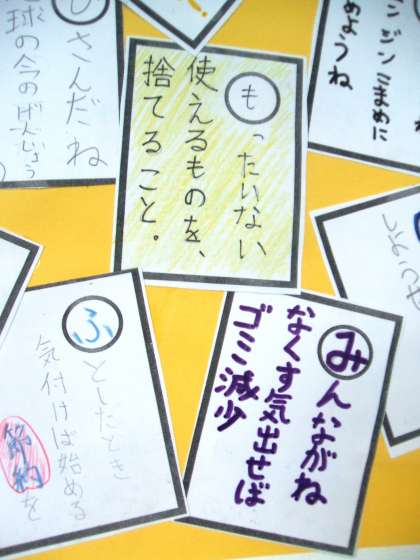 もったいない
使えるものを、
捨てること。
みんながね
なくす気出せば
ゴミ減少
ふとしたとき
気付けば始める
節約を
さんだね
球の今のげんじょう
ン ジン こまめに
めようね